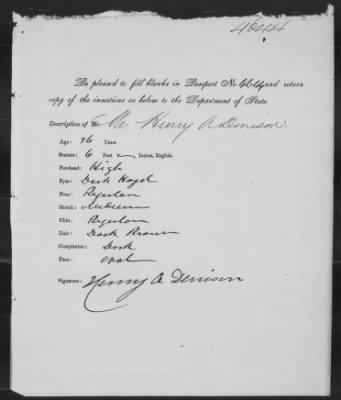 Be pleased to fill blanks in Passport No. 4644 and return
copy of the insertions as below to the Department of State.
Description of Mr. Henry A Denison.
Age: 26 Years
Stature: 6 Feet Inches, English.
Forehead: High
Eyes: Dark Hazel
Nose: Regular
Mouth: Medium
Chin: Regular
Hair: Dark Brown
Complexion: Dark
Face: Oval
Signature: Henry A Denison